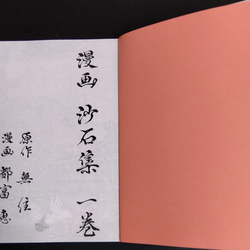 漫画 沙石集 一巻
原作 無住
漫画 都富 恵